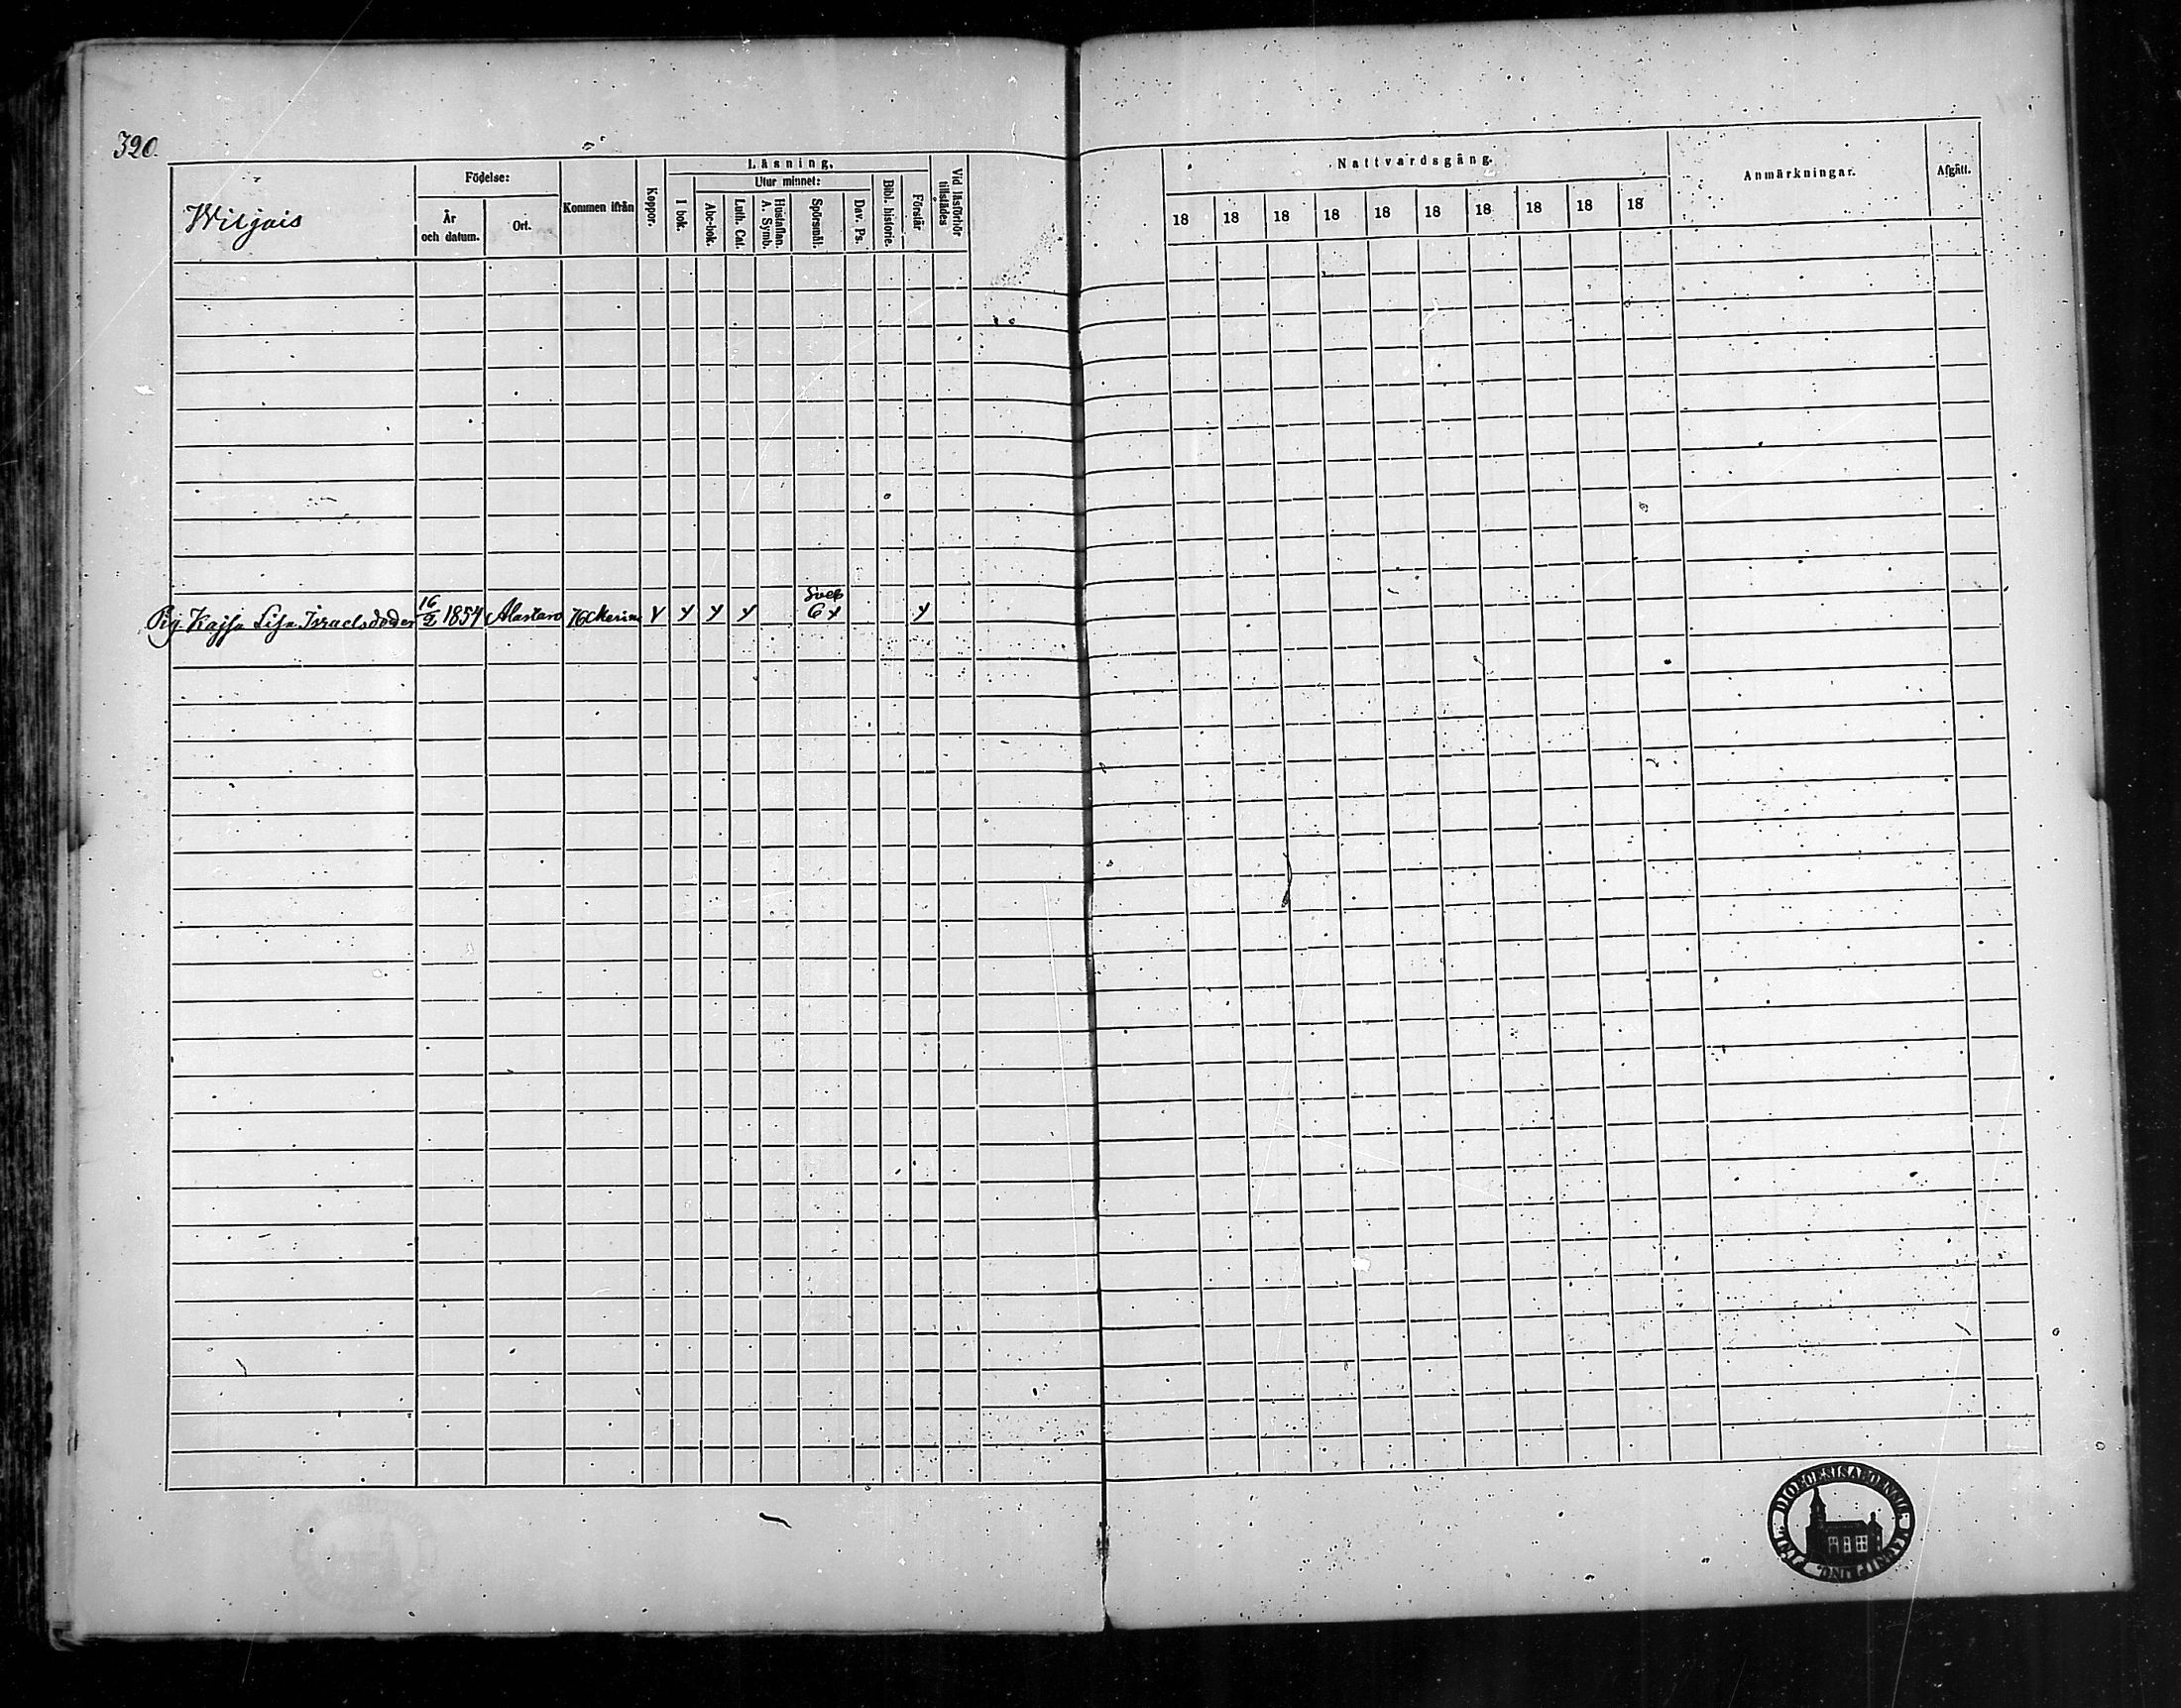 320.
Wiljais
Födelse:
År
och datum.
Ort.
Kommen ifrån
Koppor.
Läsning.
I bok.
Utur minnet:
Abc-bok.
Luth. Cat.
Hustaflan.
A. Symb.
Spörsmål.
Dav. Ps.
Bibl. historie.
Förstår
Vid läsförhör
tillstädes
Nattvardsgång.
18 18 18 18 18 18 18 18 18 18
Anmärkningar.
Afgått.
Pig. Kajsa Lisa Israelsdoder 16/2 1854 Alastaro